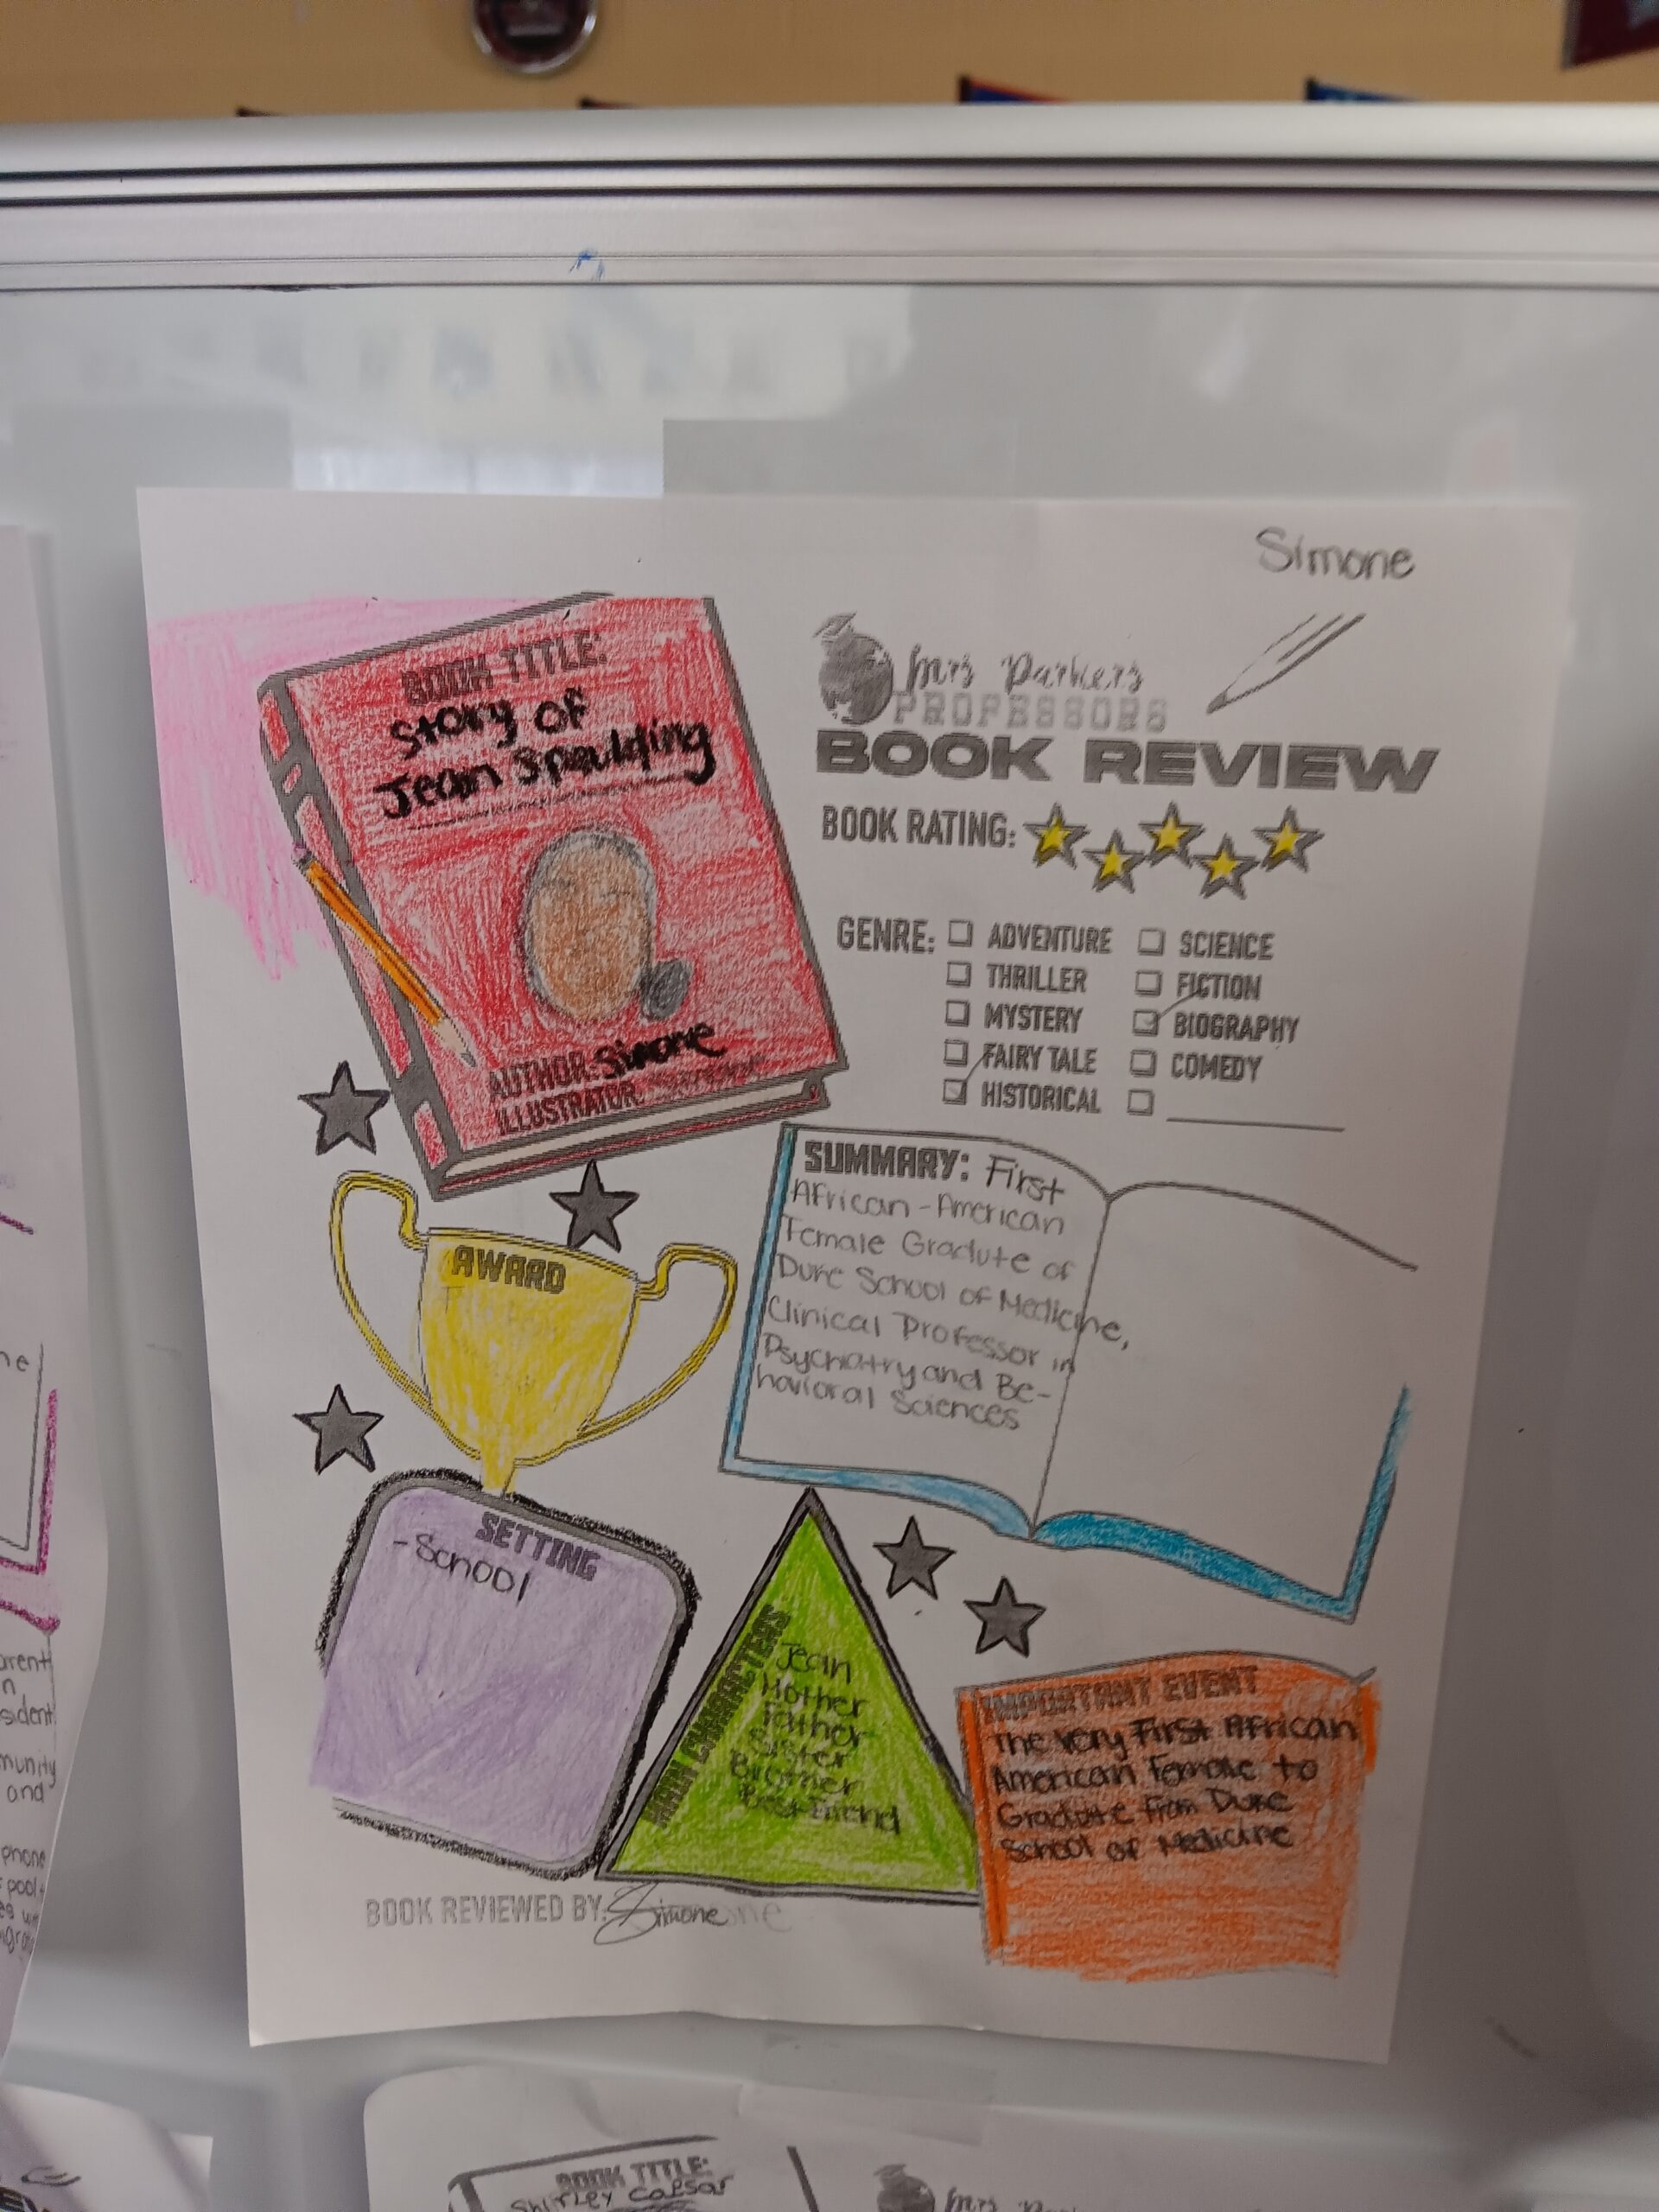 Simone
BOOK TITLE:
Story of
Jean Spaulding
AUTHOR: Simone
ILLUSTRATOR:
Mrs Parkers
PROFESSORS
BOOK REVIEW
BOOK RATING:
GENRE:
ADVENTURE
THRILLER
MYSTERY
FAIRY TALE
HISTORICAL
SCIENCE
FICTION
BIOGRAPHY
COMEDY
SUMMARY: First
African-American
Female Gradute of
Duke School of Medicine,
Clinical Professor in
Psychiatry and Be-
havioral Sciences
AWARD
SETTING
-School
MAIN CHARACTERS
Jean
Mother
Father
Sister
Brother
Best Friend
IMPORTANT EVENT
The very First African
American Female to
Gradute from Duke
School of Medicine
BOOK REVIEWED BY: Simone
ne
arent
n
sident
munity
and
phone
pool
BOOK TITLE:
Shirley Caesar
Mrs